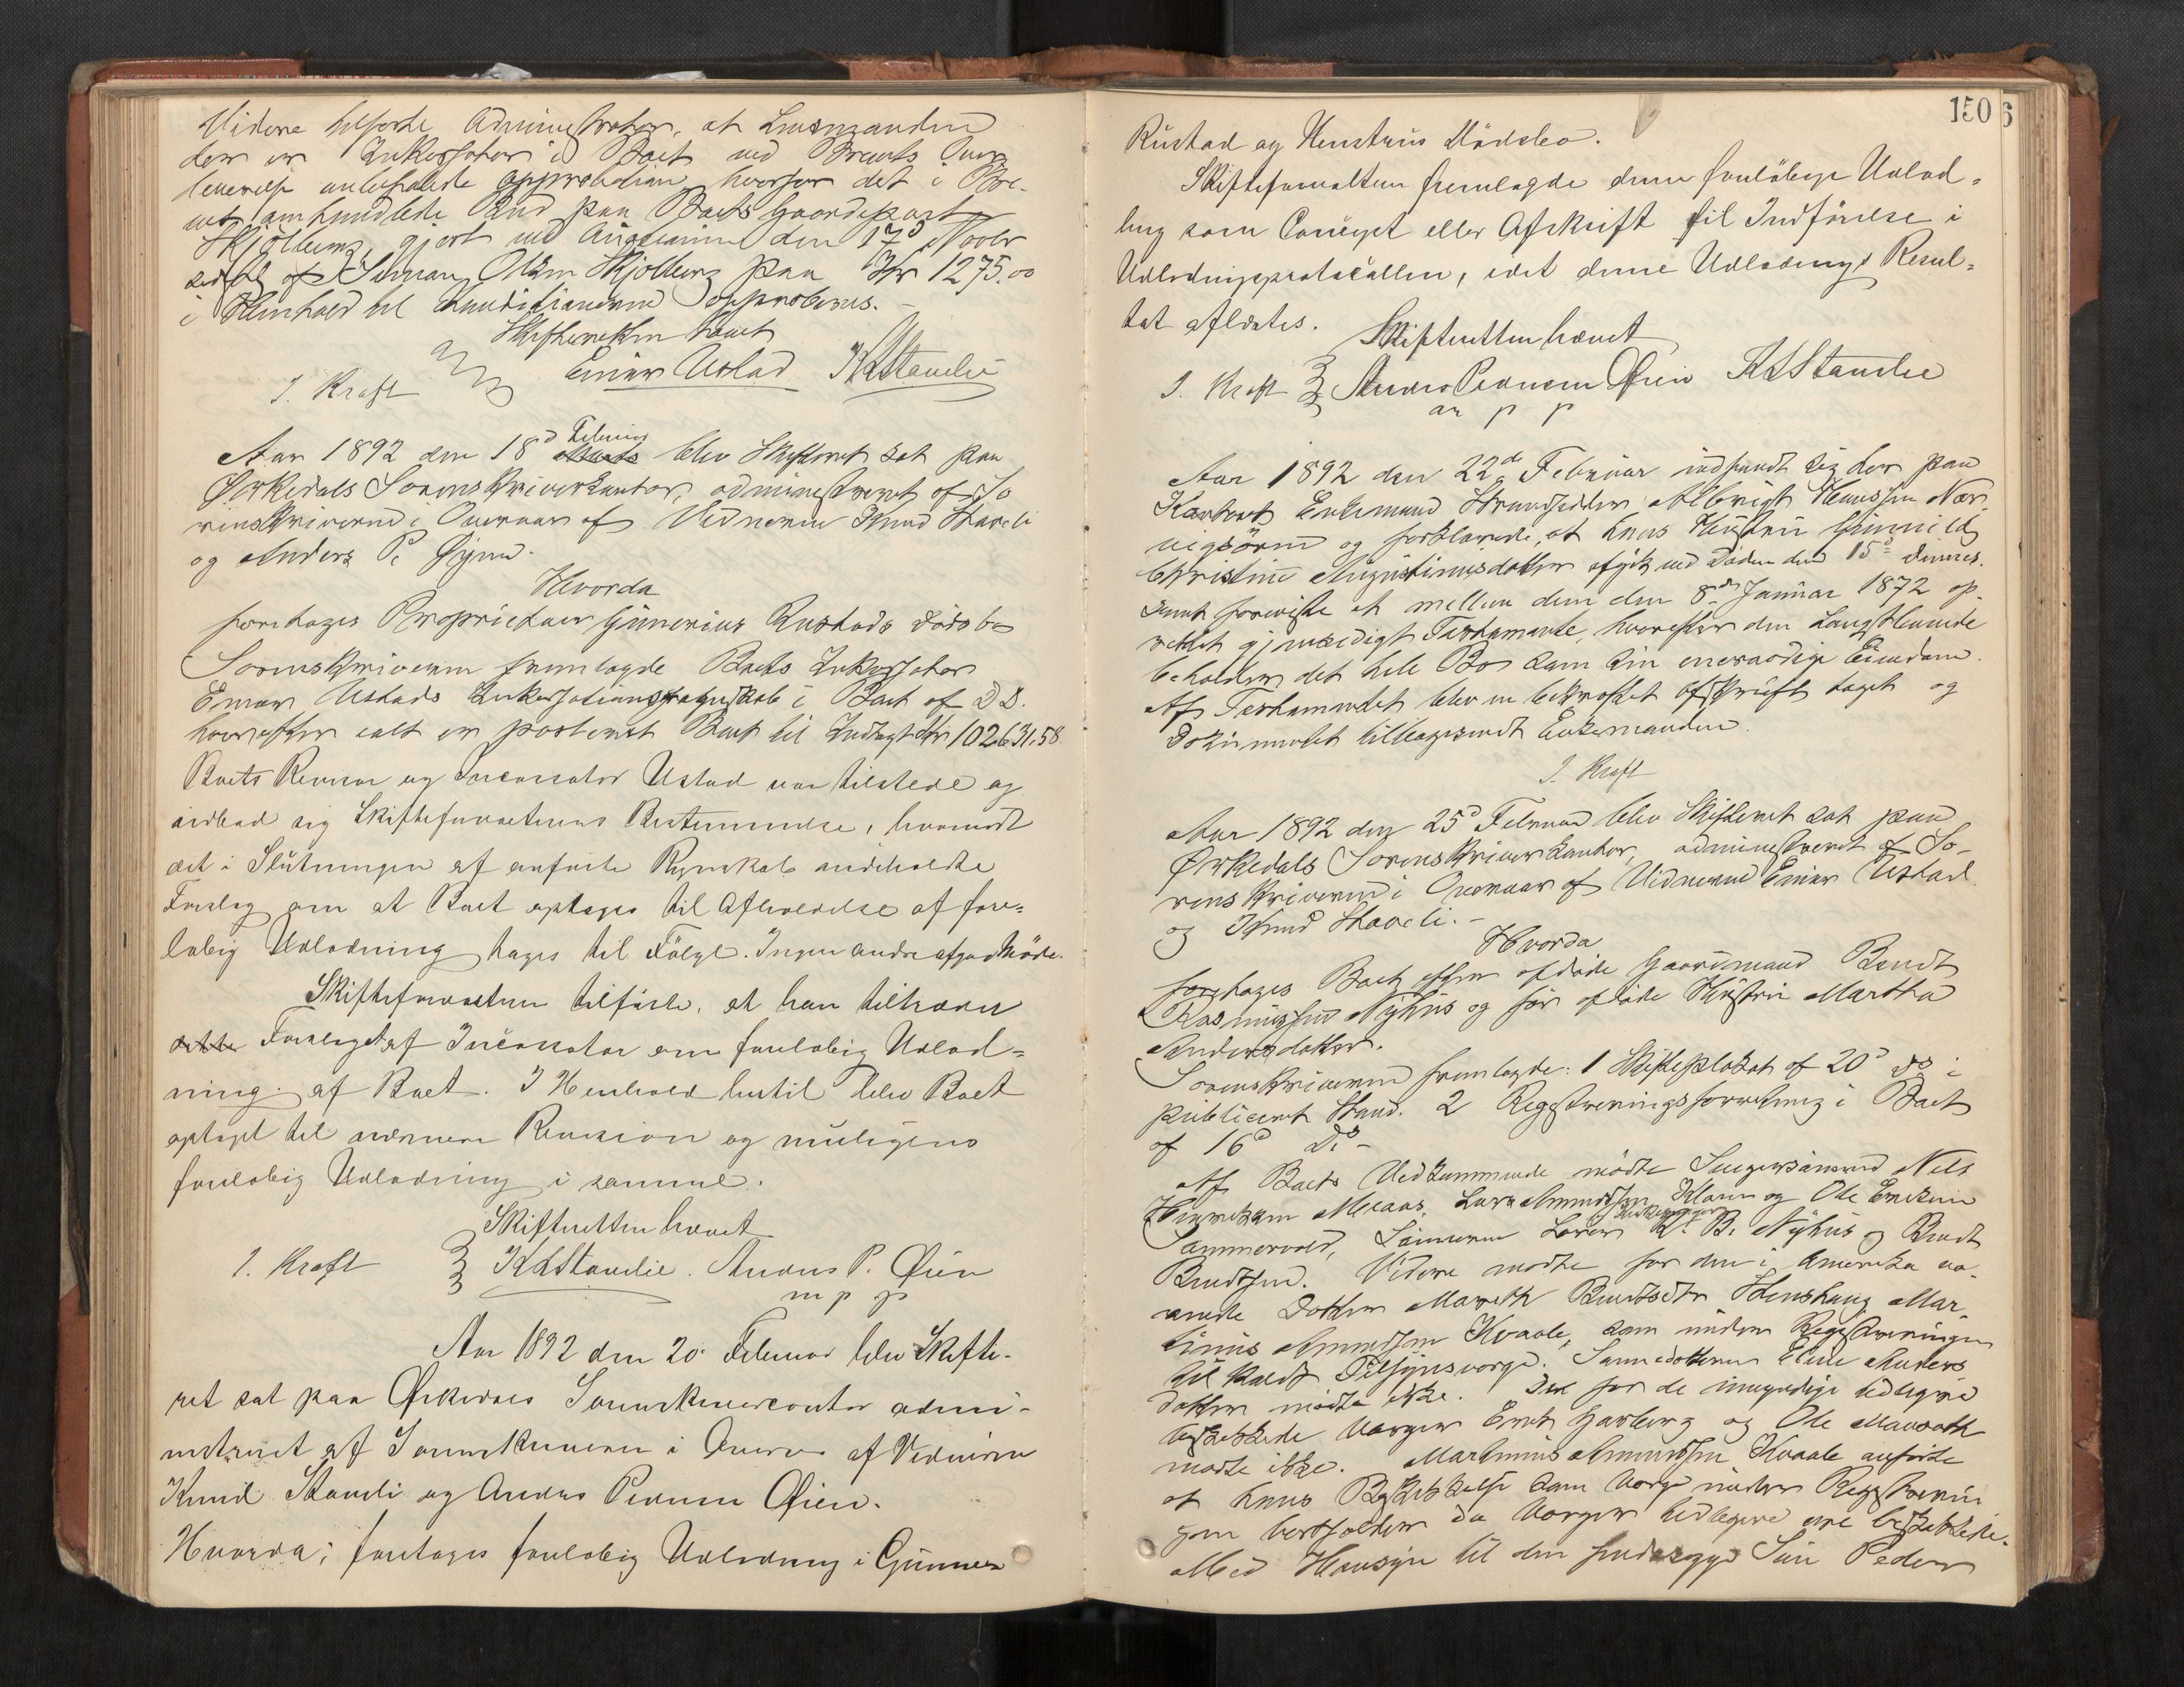 Videre tilførte Administrator, at Lensmanden
der er Inkassator i Boet ved Brevets Over
leverelse anbefalede Approbation, hvorfor det i Bre-
vet omhandlede Bud paa Boets Gaardepart
Skjølberg, gjort ved Auctionen den 17d Novbr
sidstl af Simon Olsen Skjølberg paa Kr 1275.00
i Henhold til Konditionerne approberes.-
Skifteretten hævet
J. Kraft Einar Ustad KLStavlie
Aar 1892 den 18d Februar blev Skifteret sat paa
Ørkedals Sorenskriverkontor, administreret af So
renskriveren i Overvær af Vidnerne Knud Stavli
og Anders P. Øyen.
Hvorda
foretages Proprietær Gunerius Rustads Dødsbo
Sorenskriveren fremlagde Boets Inkassator
Einar Ustads Inkassationsregnskab i Boet af D. D.
hvorefter ialt er posteret Boet til Indtægt Kr 102631.58.
Boets Revisor og Incassator Ustad var tilstede og
udbad sig Skifteforvalterens Bestemmelse, hvorvidt
det i Slutningen af anførte Regnskab indeholdte
Forslag om at Boet optages til Afholdelse af fore-
løbig Udlodning tages til Følge. Ingen andre afgav Møde.
Skifteforvalteren tilførte, at han tiltræder
dette Forslaget af Incassator om foreløbig Udlod-
ning af Boet. I Henhold hertil blev Boet
optaget til nærmere Revision og muligens
foreløbig Udlodning i samme.
Skifteretten hævet
J. Kraft KLStavlie. Anders P. Øien
m p p
Aar 1892 den 20. Februar blev Skifte-
ret sat paa Ørkedals Sorenskrivercontor admi-
nistreret af Sorenskriveren i Overvær af Vidnerne
Knud Stavli og Anders Pedersen Øien.
Hvorda; foretages foreløbig Udlodning i Gunner
150 6
Rustad og Hustrus Dødsbo.
Skifteforvalteren fremlagde denne foreløbige Udlod-
ling som Concept eller Afskrift til Indførelse i
Udlodningsprotocollen, idet denne Udlodnings Resul-
tat aflæstes. Skifteretten hævet
J. Kraft Anders Pedersen Øien KLStavlie
m p p
Aar 1892 den 22d Februar indfandt sig her paa
Kontoret Enkemand Strandsidder Albrigt Hansen Nær
vigsøren og forklarede, at hans Hustru Gunnild
Christine Augustinusdatter afgik ved Døden den 15d dennes.
samt foreviste et mellem dem den 8de Januar 1872 op-
rettet gjensidigt Testamente, hvorefter den Længstlevende
beholder det hele Bo som sin eneraadige Eiendom.
Af Testamentet blev en bekræftet Afskrift taget og
Dokumentet tilbagesendt Enkemanden.
J. Kraft
Aar 1892 den 25d Februar blev Skifteret sat paa
Ørkedals Sorenskriverkontor, administreret af So-
renskriveren i Overvær af Vidnerne Einar Ustad
og Knud Stavli.-
Hvorda
foretages Boet efter afdøde Gaardmand Bendt
Rasmussen Nyhus og før afdøde Hustru Martha
Andersdatter.
Sorenskriveren fremlagde: 1 Skifteplakat af 20d ds i
publiceret Stand. 2 Registreringsforretning i Boet
af 16d Ds-
Af Boets Vedkommende mødte Svigersønnerne Nils
Henriksen Meraas, Lars Amundsen Klaven og Ole Ericksen
Sommervold, Sønnerne Lærer Kirkesanger R. B. Nyhus og Bendt
Bendtsen. Videre mødte for den i Amerika væ-
rende Datter Mareth Bendtsdtr Stenshaug Mar-
tinus Amundsen Kvaale, som under Registreringen
tilkaldt Tilsynsværge. Sønnedatteren Eline Anders
datter mødte ikke. Den for de umyndige tidligere
beskikkede Værger Erick Garberg og Ole Mavoth
mødte ikke. Martinus Amundsen Kvaale anførte
at hans Beskikkelse som Værge under Registrerin
gen bortfalder da Værger tidligere ere beskikkede.
Med Hensyn til den sindssyge Søn Peder